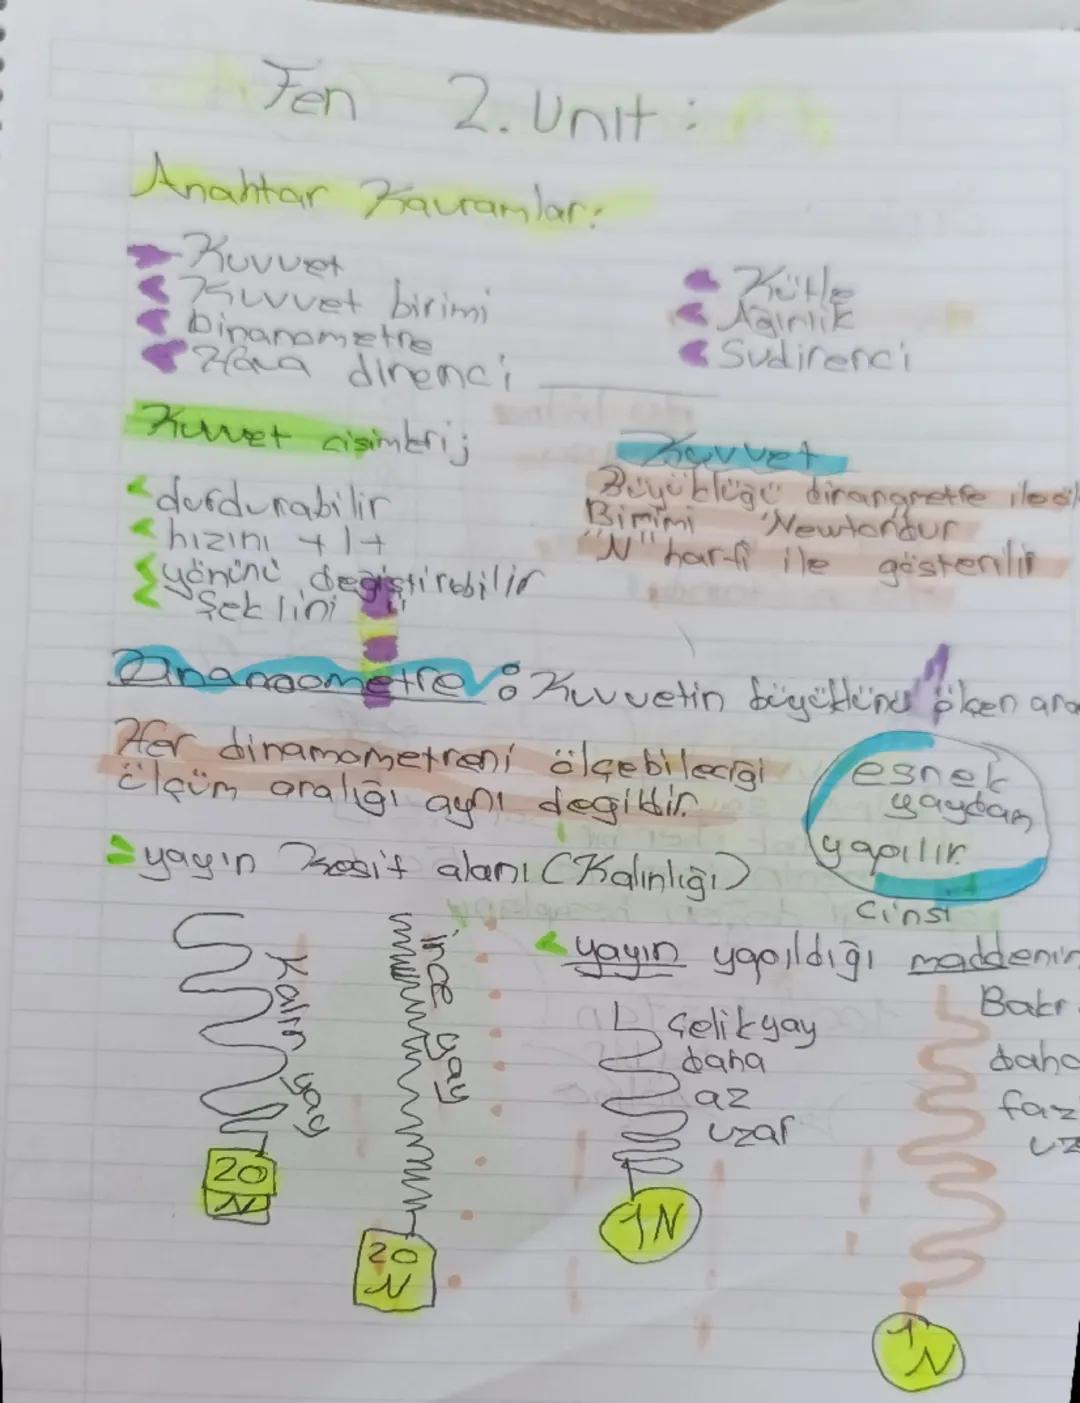 Fen 2. Unit:
Anahtar Kavramlar:
Kuvvet
Kuvvet birimi
binanometre
Hava direnci
Kütle
Ağırlık
Sudirenci
Kuvvet cisimleri;
durdurabilir
hızını + | +
yönünü değiştirebilir
Şeklini
Kuvvet
Büyüklüğü
Birimi Newtondur
"N" harfi ile gösterilir
: Kuvvetin ölçen
Her dinamometreni ölçebileceği
ölçüm aralığı aynı değildir.
esnek
yaydan
yapılır.
yayın Kesit alanı (Kalınlığı)
cinsi
yayın yapıldığı maddenin
Kalın yay
ince yay
Çelik yay
daha
az
uzar
Bakr
daha
faz
uz
20
N
20
N
1N
1
N